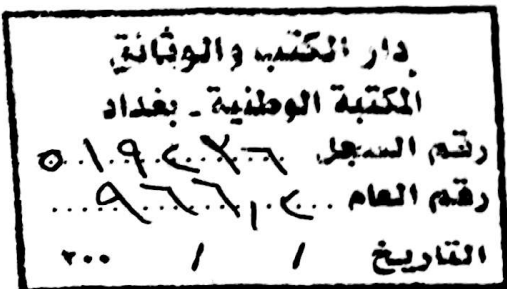 دار الكتب والوثائق
المكتبة الوطنية - بغداد
رقم السجل ٥١٩٢٧٦
رقم العام ٩٦٦,٢
التاريخ / / ٢٠٠